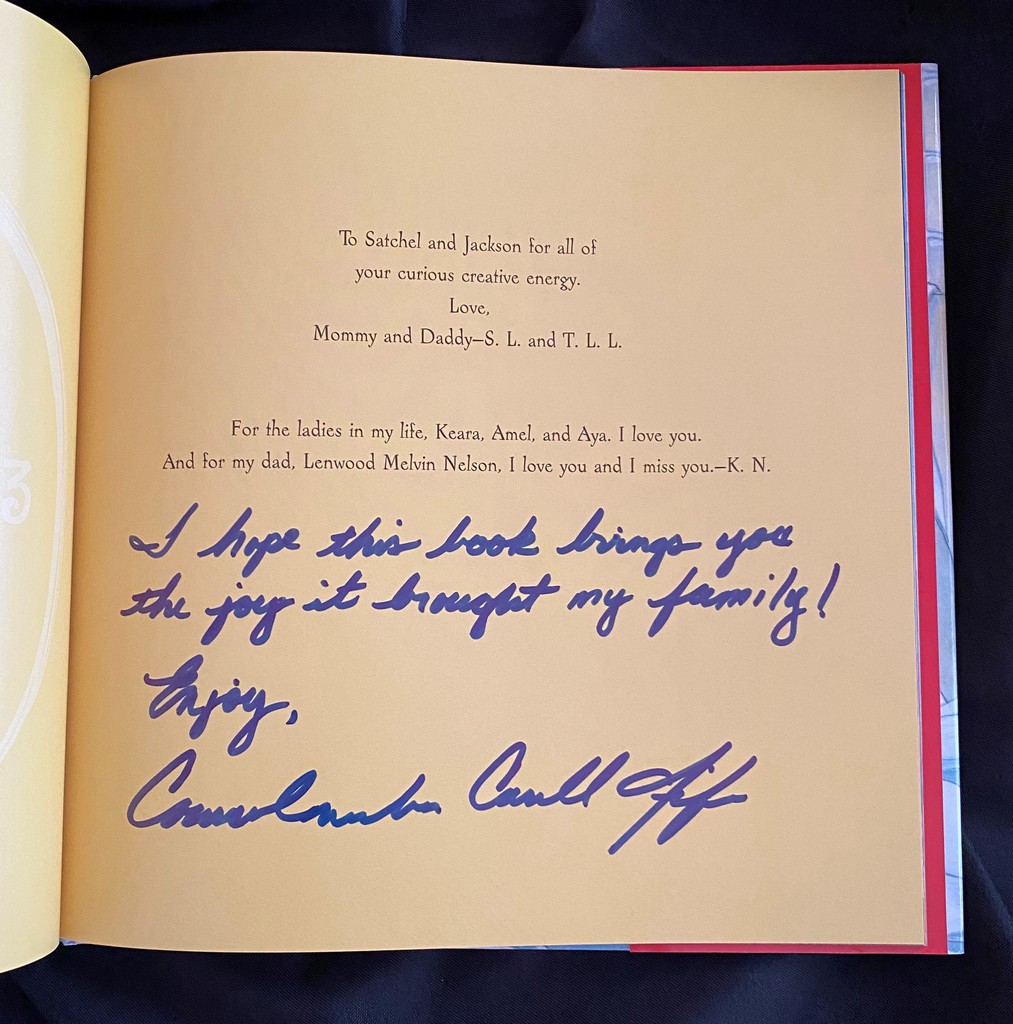 To Satchel and Jackson for all of
your curious creative energy.
Love,
Mommy and Daddy—S. L. and T. L. L.
For the ladies in my life, Keara, Amel, and Aya. I love you.
And for my dad, Lenwood Melvin Nelson, I love you and I miss you.—K. N.
I hope this book brings you
the joy it brought my family!
Enjoy,